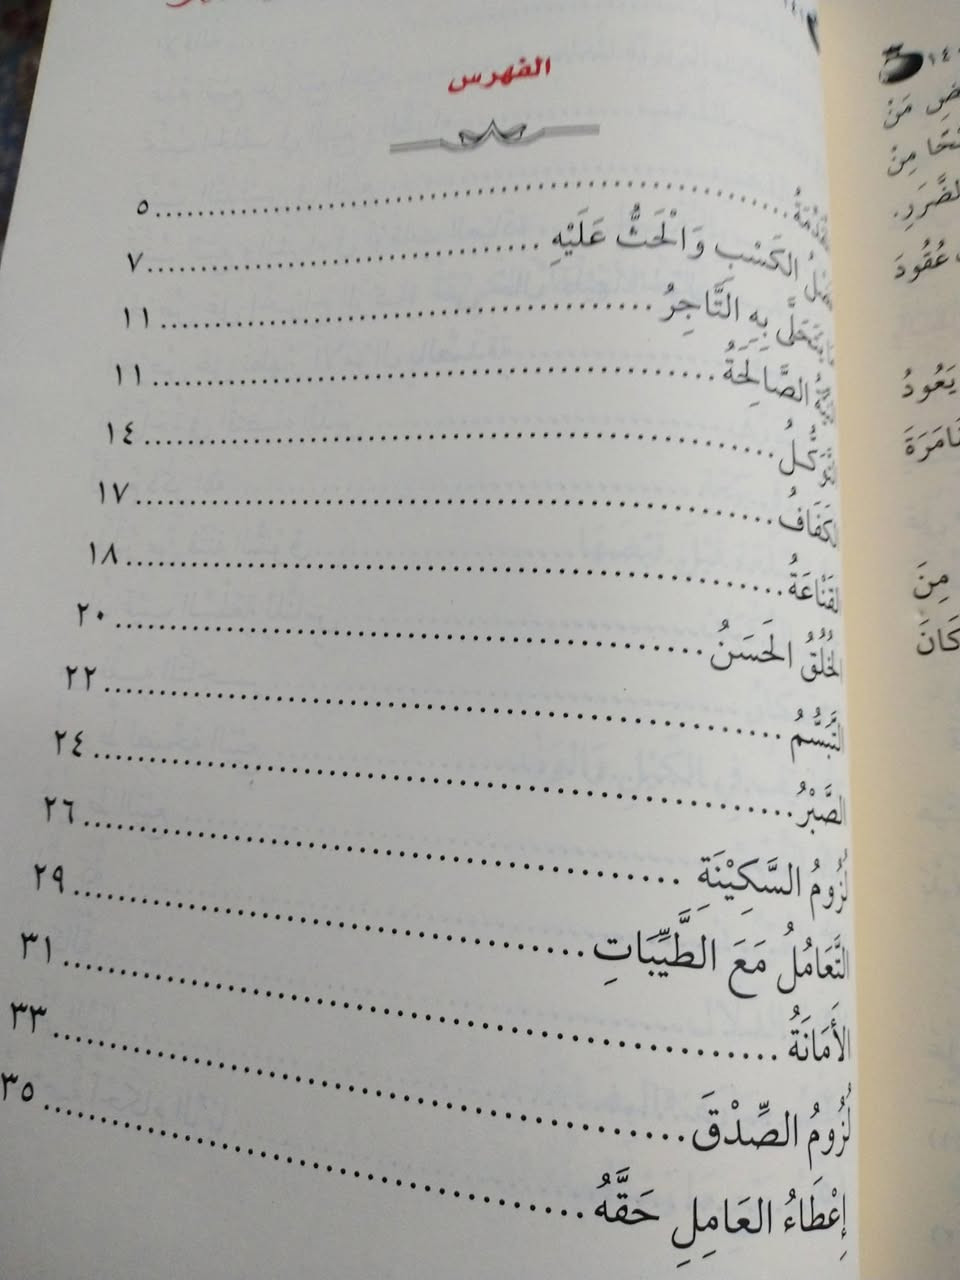 الفهرس
............ ٥
الكَسْبِ وَالْحَثُّ عَلَيْهِ ............ ٧
بِهِ التَّاجِرُ ............ ١١
الصَّالِحَةُ ............ ١١
التَّوَكُّلُ ............ ١٤
الكَفَافُ ............ ١٧
القَنَاعَةُ ............ ١٨
الخُلُقُ الحَسَنُ ............ ٢٠
التَّبَسُّمُ ............ ٢٢
الصَّبْرُ ............ ٢٤
لُزُومُ السَّكِيْنَةِ ............ ٢٦
التَّعَامُلُ مَعَ الطَّيِّبَاتِ ............ ٢٩
الأَمَانَةُ ............ ٣١
لُزُومُ الصِّدْقَ ............ ٣٣
إِعْطَاءُ العَامِلِ حَقَّهُ ............ ٣٥
مَنْ
مِنْ
عُقُودَ
يَعُودُ
مِنَ
كَانَ